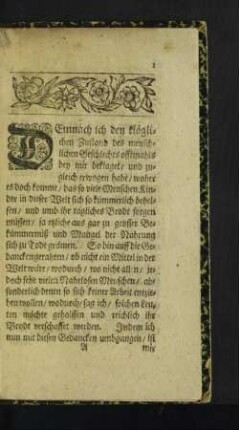 1
DEmnach ich den klägli-
chen Zustand des mensch-
lichen Geschlechts offtmahls
bey mir beklaget / und zu-
gleich erwogen habe / woher
es doch komme / das so viele Menschen Kin-
der in dieser Welt sich so kümmerlich behel-
fen / und umb ihr tägliches Brodt sorgen
müssen / ja etliche aus gar zu grosser Be-
kümmernüß und Mangel der Nahrung
sich zu Tode grämen. So bin auff die Ge-
dancken gerathen / ob nicht ein Mittel in der
Welt wäre / wodurch / wo nicht allen / je-
doch sehr vielen Nahrlosen Menschen / ab-
sonderlich denen so sich keiner Arbeit entzie-
hen wollen / wodurch / sag ich / solchen Leu-
ten möchte geholffen und reichlich ihr
Brodt verschaffet werden. Indem ich
nun mit diesen Gedancken umbgangen / ist
A mir